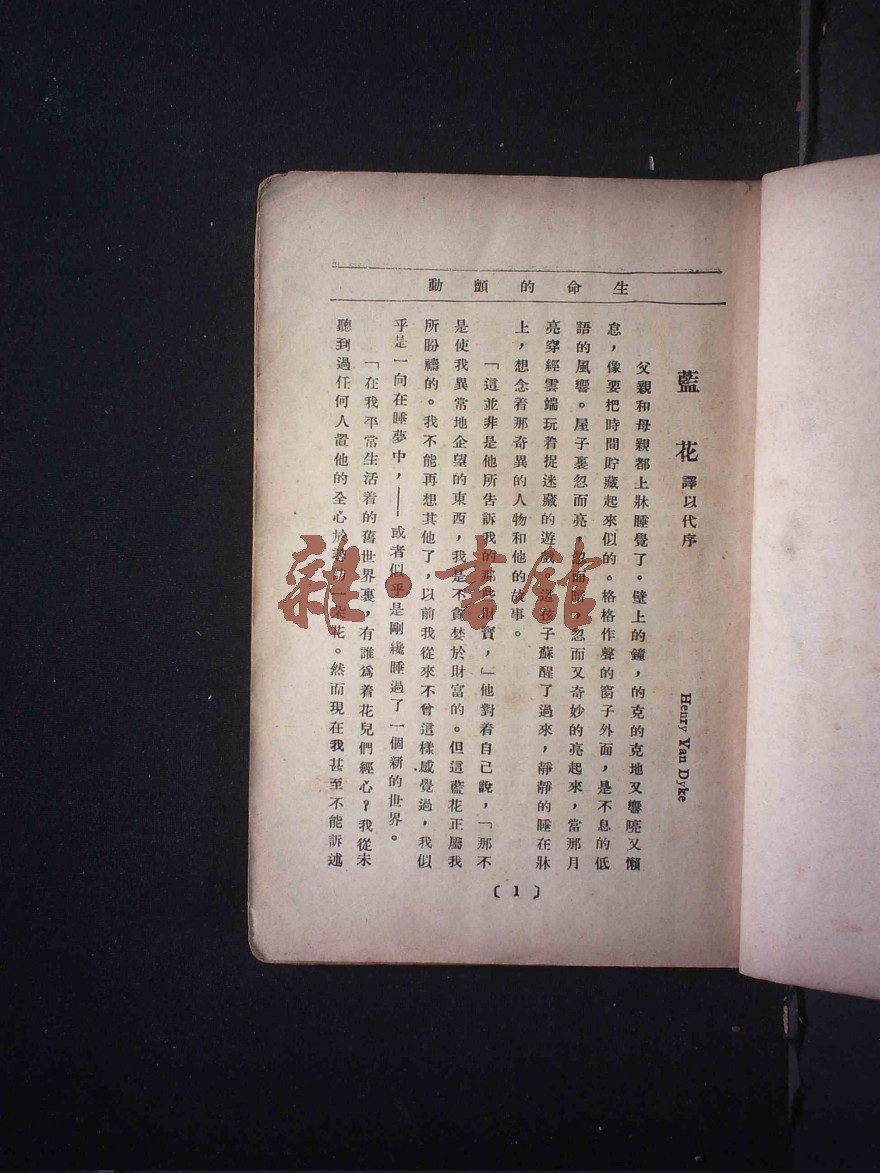 生命的顫動
藍花 譯以代序 Henry Van Dyke
父親和母親都上牀睡覺了。壁上的鐘，的克的克地又響喨又懶
怠，像要把時間貯藏起來似的。格格作聲的窗子外面，是不息的低
語的風響。屋子裏忽而亮，忽而暗，忽而又奇妙的亮起來，當那月
亮穿經雲端玩着捉迷藏的遊戲。這孩子蘇醒了過來，靜靜的睡在牀
上，想念着那奇異的人物和他的故事。
「這並非是他所告訴我的那些財寶，」他對着自己說，「那不
是使我異常地企望的東西，我是不貪婪於財富的。但這藍花正屬我
所盼禱的。我不能再想其他了，以前我從來不曾這樣感覺過，我似
乎是一向在睡夢中，——或者似乎是剛纔睡過了一個新的世界。
「在我平常生活着的舊世界裏，有誰爲着花兒們經心？我從未
聽到過任何人置他的全心於一朵花。然而現在我甚至不能訴述
〔1〕
雜·書館